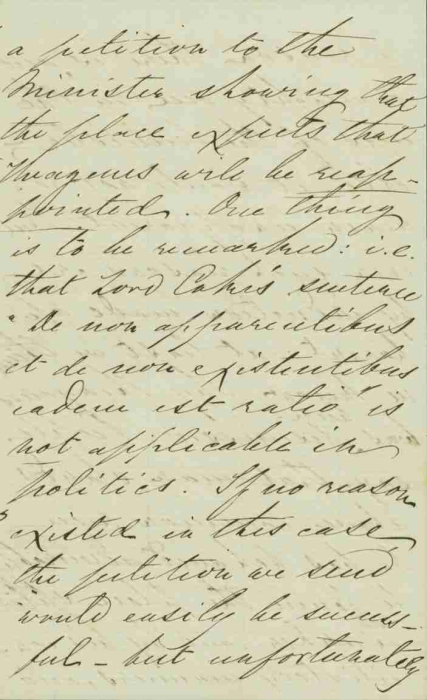 a petition to the
Minister showing that
the place expects that
will be reap-
pointed. One thing
is to be remarked: i.e.
that Lord Coke's sentence
"De non apparentibus
et de non existentibus
eadem est ratio" is
not applicable in
politics. If no reason
existed in this case,
the petition we send
would easily be success-
ful - but unfortunately